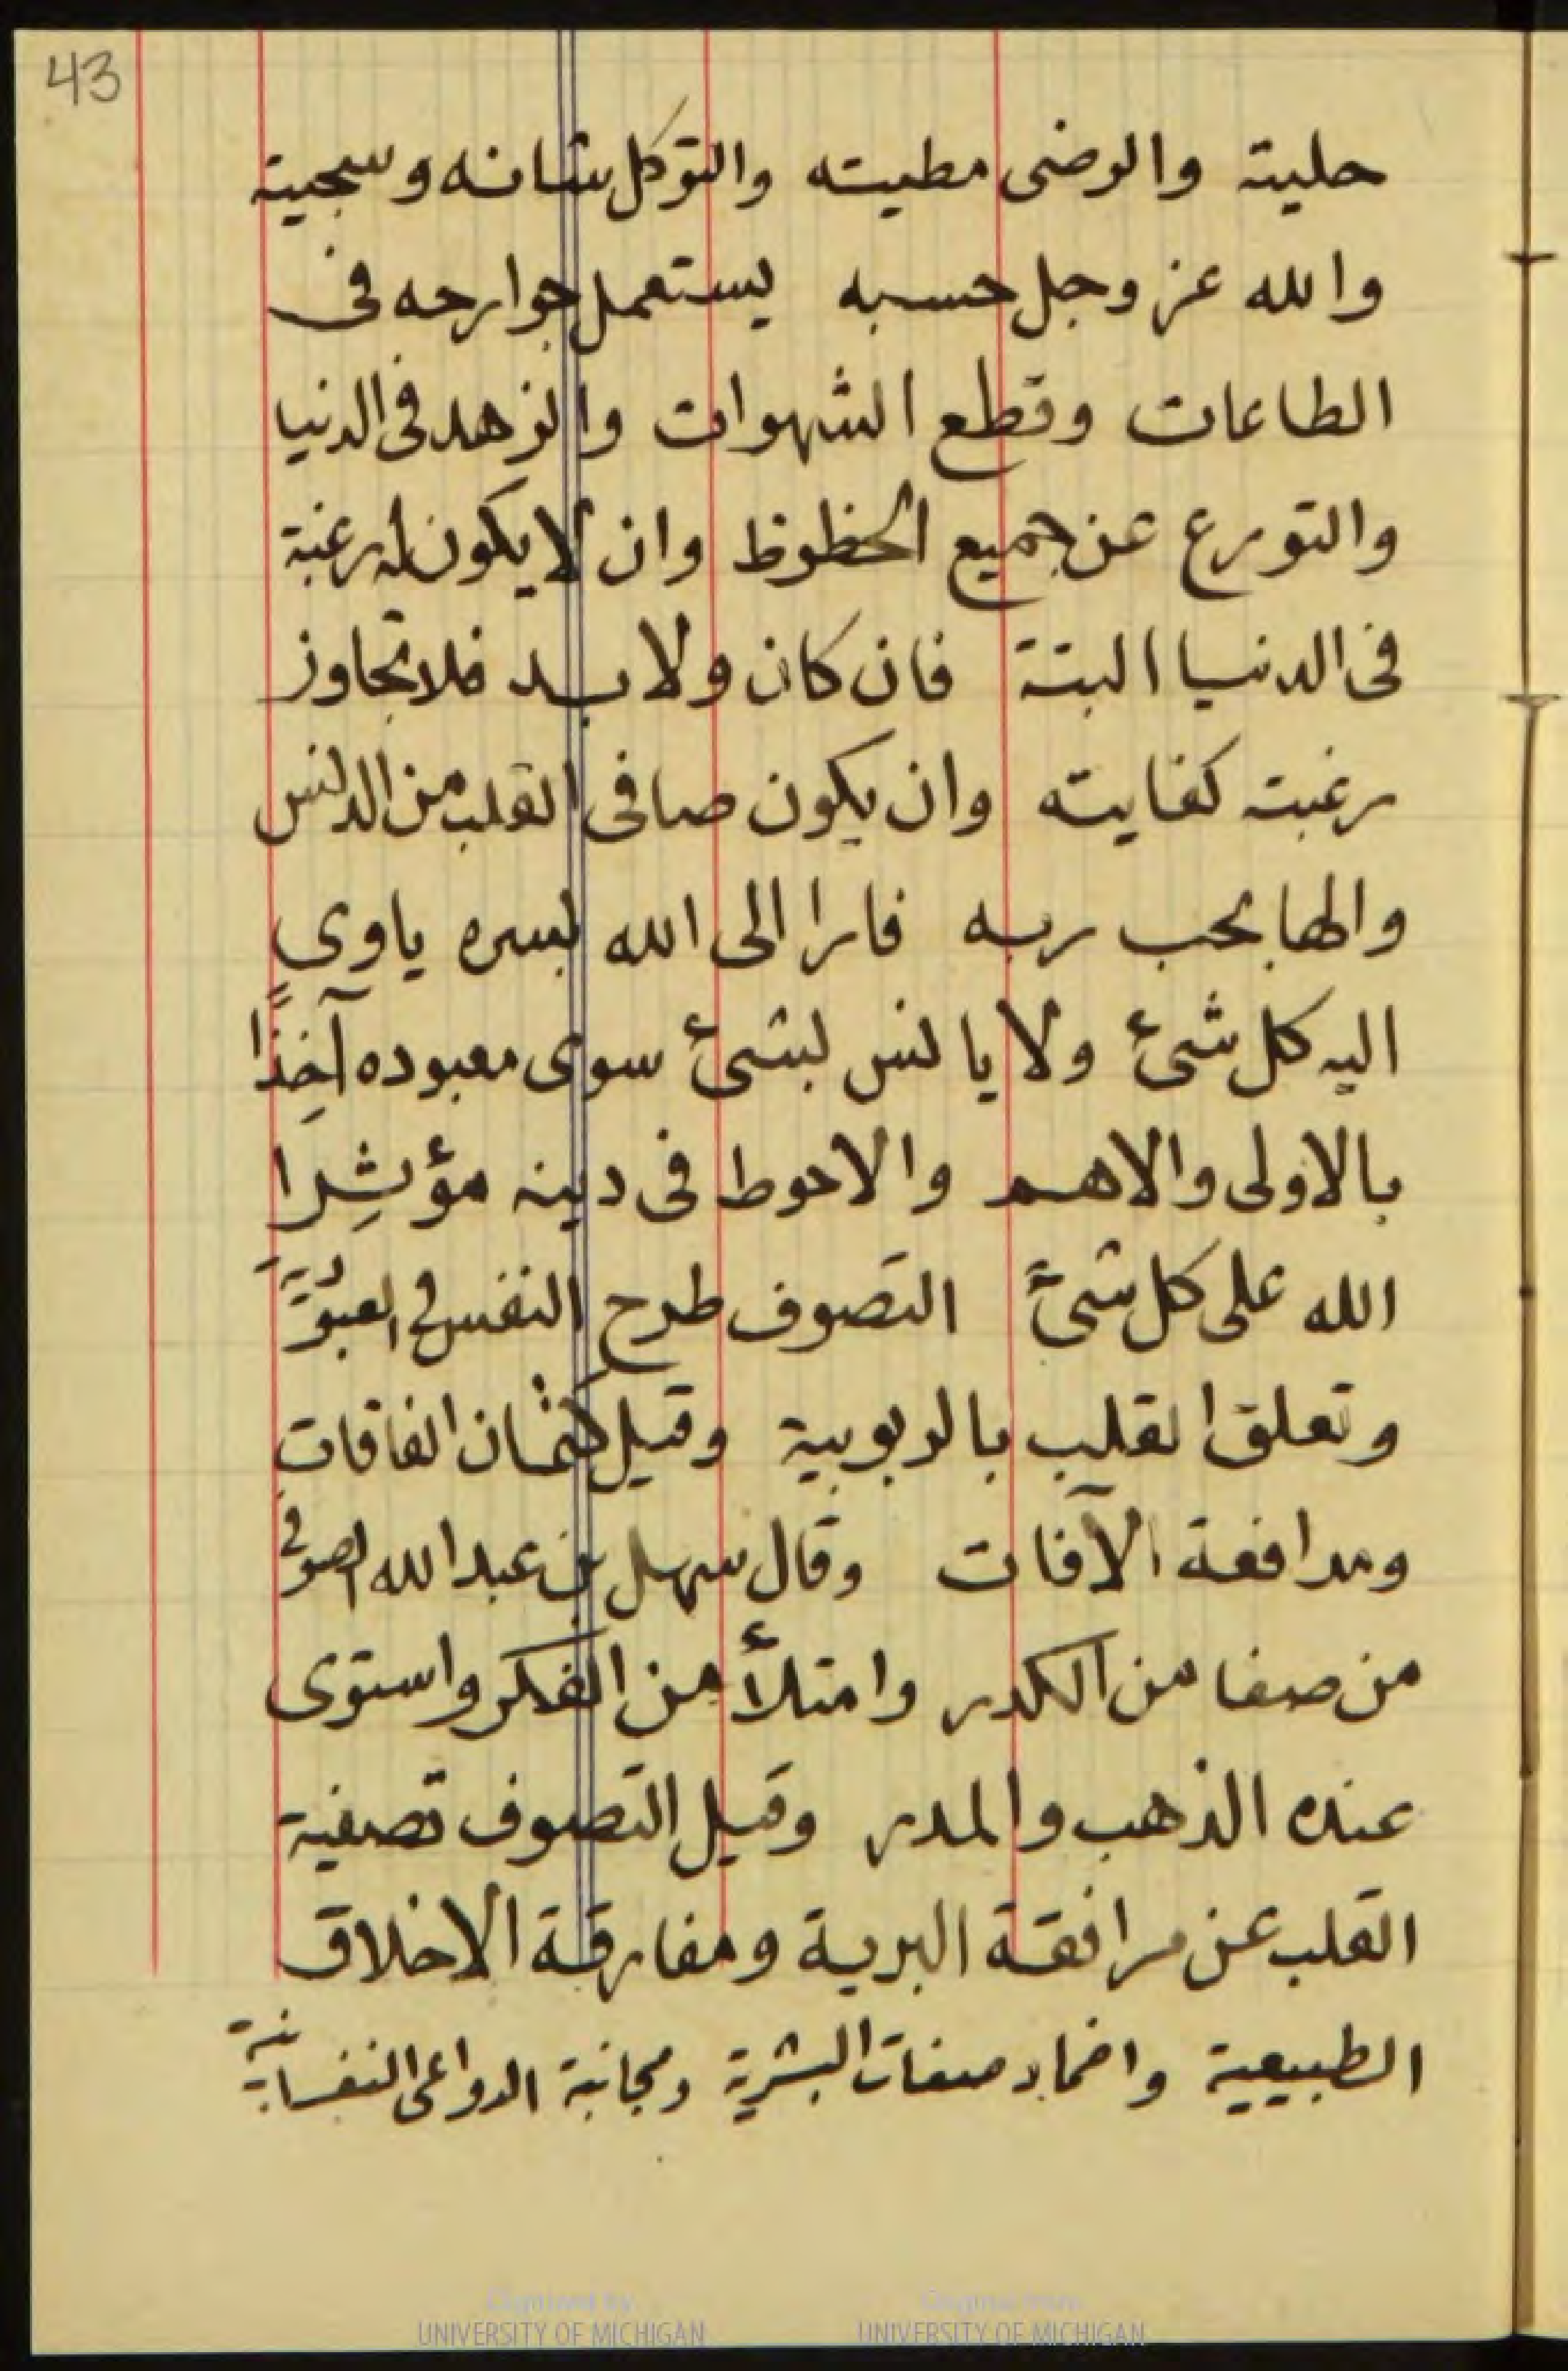 43
حليته والرضى مطيته والتوكل شانه وسجيته
والله عز وجل حسبه يستعمل جوارحه فى
الطاعات وقطع الشهوات والزهد فى الدنيا
والتورع عن جميع الحظوظ وان لا يكون له رغبة
فى الدنيا البتة فان كان ولا بد فلا تجاوز
رغبته كفايته وان يكون صافى القلب من الدنس
والها بحب ربه فارا الى الله بسره ياوى
اليه كل شىء ولا يانس بشىء سوى معبوده آخِذًا
بالاولى والاهم والاحوط فى دينه مؤثِرا
الله على كل شىء التصوف طرح النفس فى العبوديّة
وتعلق القلب بالربوبية وقيل كتمان الفاقات
ومدافعة الآفات وقال سهل بن عبد الله الصوفى
من صفا من الكدر وامتلأ من الفكر واستوى
عنده الذهب والمدر وقيل التصوف تصفية
القلب عن مرافقة البرية ومفارقة الاخلاق
الطبيعية واخماد صفات البشرية ومجانبة الدواعى النفسانية
Digitized by
UNIVERSITY OF MICHIGAN
Original from
UNIVERSITY OF MICHIGAN